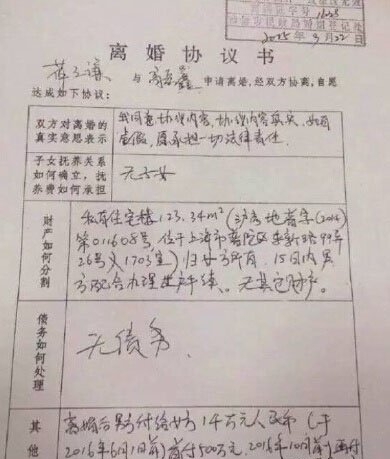 2015年9月22日
离婚协议书
与 申请离婚,经双方协商,自愿
达成如下协议:
双方对离婚的
真实意思表示
我同意协议内容,协议内容真实,如有
虚假,愿承担一切法律责任
子女抚养关系
如何确立,抚
养费如何承担
无子女
财产如何分割
私有住宅楼123.34m²(沪房地普字(2014)
第011608号,位于上海市普陀区 新路99弄
26号 1703室)归女方所有,15日内男
方配合办理过户手续。无其它财产。
债务如何处理
无债务.
其他
离婚后男方付给女方1千万元人民币(于
2016年6月1日前)首付500万元,2016年10月前